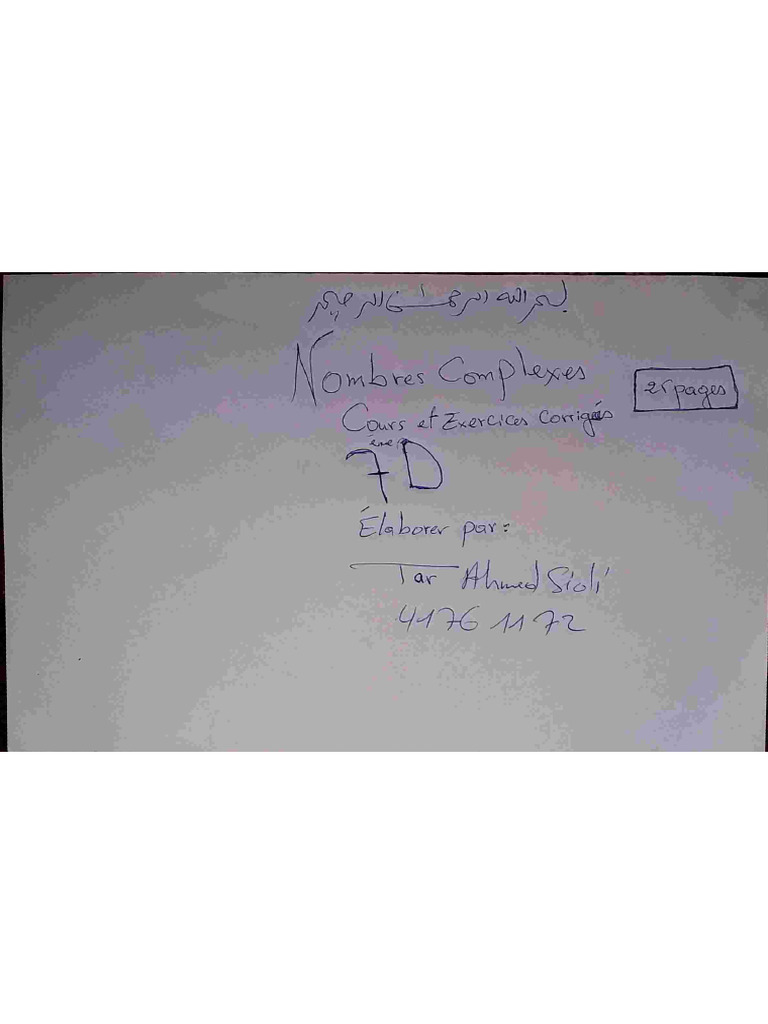 بسم الله الرحمن الرحيم
Nombres Complexes
Cours et Exercices Corrigés
pages
7ème D
Élaborer par:
Ahmed Sidi
41761172